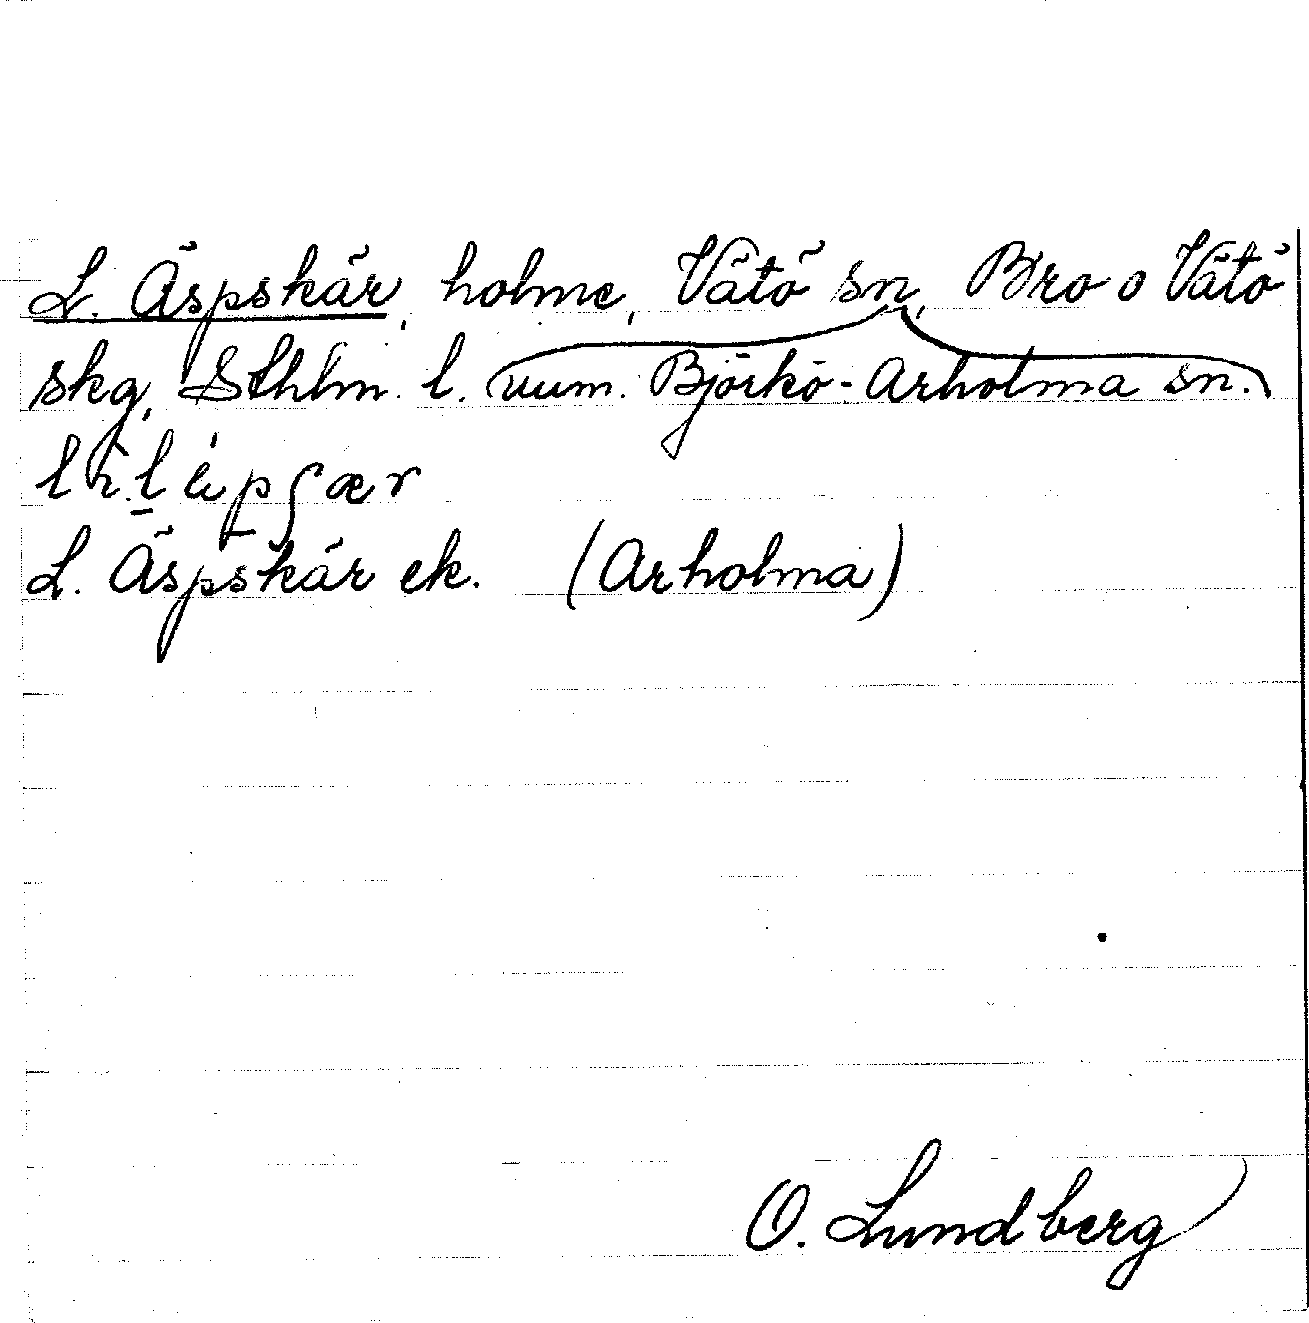 L. Äspskär, holme, Vätö sn, Bro o Vätö
skg, Sthlm. l. (num. Björkö-Arholma sn.)
L. Äspskär ek. (Arholma)
O. Lundberg